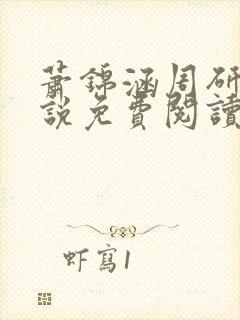 蕭錦涵周研
說免費閱讀
虾寫1